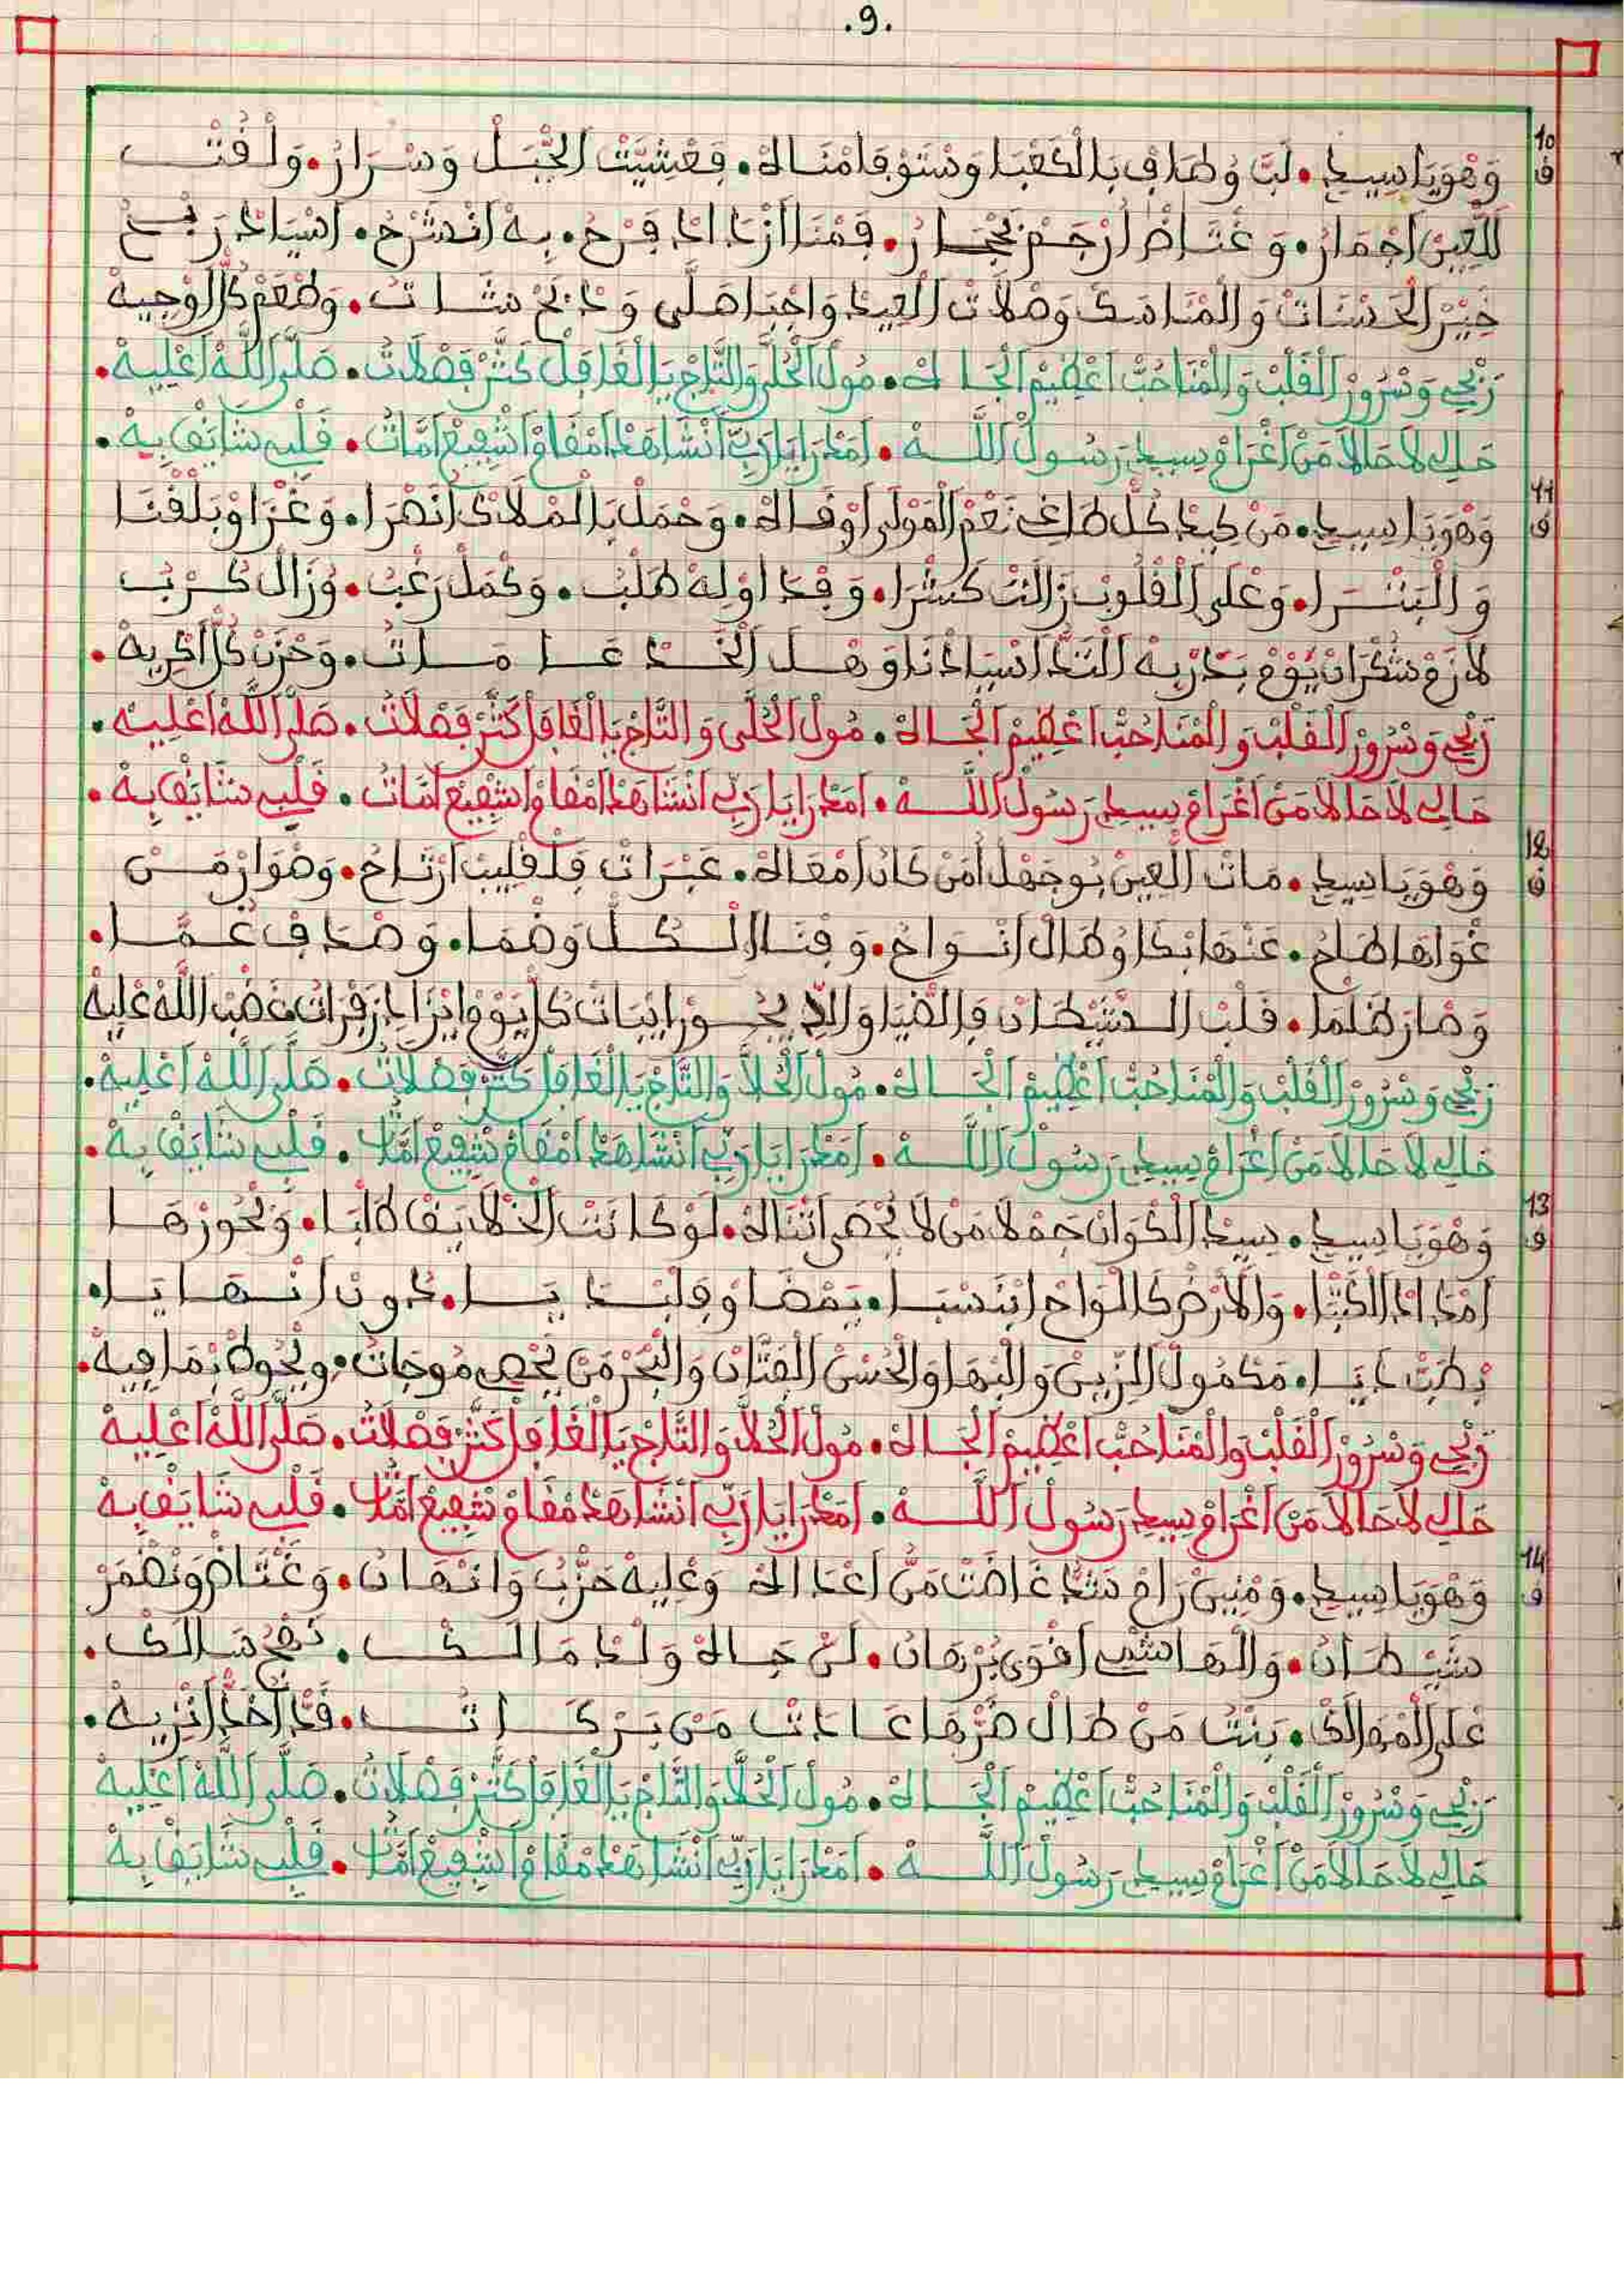 .9.
10 ف
وَهْوَ يَا سِيدِي • لَبَّ وُطَافْ بَالْكَعْبَا وَسْتَوْفَا مْنَاهْ • فَعْشِيَّتْ الجْبَلْ وَسْرَارْ • وَلْفُتْ
للعِينْ اجْمَارْ • وَغْتَاضْ ارْجَمْ بَجْمَارْ • فَمْنَا ازْدَادْ فَرْحُ • بِهْ انْشَرْحُ • اسْيَادْ رَبْحُ
خِيْر الحَسْنَاتْ وَالمْنَاسَكْ وَصْلَاتْ العِيدْ وَاجْبَا صَلَّى وَدْبَحْ شَاتُ • وَطْعَمْ كَالوْجِيهْ
زَنْجِي وَسْرُورْ القَلْبْ وَالمْنَا حُبّْ اعْظِيمْ الجَاهْ • مُولْ الحُلَّى وَالتَّاجْ يَا الغَافَلْ كَثَّرْ فَصْلَاتُ • صَلَّى اللَّهْ اعْلِيهْ •
حَالِي لَا حَالَا مَنْ اغْرَامْ سِيدِي رَسُولْ اللَّهْ • امْدَرَا يَا رَبِّي انْشَاهَدْ امْقَامْ اشْفِيعْ امَّاتُ • قَلْبِي شَايَقْ بِهْ •
11 ف
وَهْوَ يَا سِيدِي • مَنْ كِيدْ كُلْ طَاغِي نَعْمْ المَوْلَى اوْقَاهْ • وَحْمَلْ بَالمْلَاكْ انَصْرَا • وَغْزَا وْبَلْقْنَا
وَالْبَشْرَا • وَعْلَى القْلُوبْ زَالَتْ كَشْرَا • وَفْدَا اوْلِهْ طَلْبُ • وَكْمَلْ رَغْبُ • وُزَالْ كَرْبُ
لَازَمْ شُكْرَانْ يَوْمْ بَدْرْ بِهْ النْدَا اسْيَادْنَا وَهْلْ الخَدْعَا مَاتُ • وَحْزَنْ كُلْ اكْرِيهْ •
زَنْجِي وَسْرُورْ القَلْبْ وَالمْنَا حُبّْ اعْظِيمْ الجَاهْ • مُولْ الحُلَّى وَالتَّاجْ يَا الغَافَلْ كَثَّرْ فَصْلَاتُ • صَلَّى اللَّهْ اعْلِيهْ •
حَالِي لَا حَالَا مَنْ اغْرَامْ سِيدِي رَسُولْ اللَّهْ • امْدَرَا يَا رَبِّي انْشَاهَدْ امْقَامْ اشْفِيعْ امَّاتُ • قَلْبِي شَايَقْ بِهْ •
12 ف
وَهْوَ يَا سِيدِي • مَاتْ العِينْ بُوجَهْلْ امَنْ كَانْ امْعَاهْ • عَبْرَاتْ فَلْقْلِيبْ ارْتَاحْ • وَهْوَارْ مَنْ
غْوَاهَا طَاحْ • عَنْهَا بْكَا وُطَالْ انْوَاحْ • وَفْنَا الكُلْ وَضْمَا • وَصْدَفْ غُمَّا •
وَصَارْ ظَلْمَا • قَلْبْ الشَّيْطَانْ فَالضْيَا وَاللِّي يْجُورْ ايْبَاتْ كُلْ يَوْمْ ايْزَادْ زَفْرَاتُ غَضْبْ اللَّهْ عْلِيهْ
زَنْجِي وَسْرُورْ القَلْبْ وَالمْنَا حُبّْ اعْظِيمْ الجَاهْ • مُولْ الحُلَّا وَالتَّاجْ يَا الغَافَلْ كَثَّرْ فَصْلَاتُ • صَلَّى اللَّهْ اعْلِيهْ •
حَالِي لَا حَالَا مَنْ اغْرَامْ سِيدِي رَسُولْ اللَّهْ • امْدَرَا يَا رَبِّي انْشَاهَدْ امْقَامْ شْفِيعْ امَّاتُ • قَلْبِي شَايَقْ بِهْ •
13 ف
وَهْوَ يَا سِيدِي • سِيدْ الكْوَانْ جَمْلَا مَنْ لَا يُحْصَى اثْنَاهْ • لَوْ كَانَتْ الخْلَايَقْ كَاتْبَا • وَبْحُورْهَا
امْدَادْ الكَتْبَا • وَالَارْضْ كَالْوَاحْ ايْنَسْبَا • يَمْضَاوْ فِلْبْدَايَا • دُونْ انْهَايَا •
بْطَبّْ دَايَا • مَكْمُولْ الزِّينْ وَالبْهَا وَالحُسْنْ الفَتَّانْ وَالبْحَرْ مَنْ يَحْصِي مُوجَاتُ • وِيْحُوطْ بْمَا فِيهْ •
زَنْجِي وَسْرُورْ القَلْبْ وَالمْنَا حُبّْ اعْظِيمْ الجَاهْ • مُولْ الحُلَّا وَالتَّاجْ يَا الغَافَلْ كَثَّرْ فَصْلَاتُ • صَلَّى اللَّهْ اعْلِيهْ
حَالِي لَا حَالَا مَنْ اغْرَامْ سِيدِي رَسُولْ اللَّهْ • امْدَرَا يَا رَبِّي انْشَاهَدْ مْقَامْ شْفِيعْ امَّاتُ • قَلْبِي شَايَقْ بِهْ
14 ف
وَهْوَ يَا سِيدِي • وَمْنِينْ رَامْ شَدَّ غَاضَتْ مَنْ اعْدَاهْ وَعْلِيهْ حَزّْبُ وَانْهَانُ • وَغْتَاضْ وَنْضْمَرْ
شَيْطَانُ • وَالهَاشْمِي اقْوَى بُرْهَانُ • لَنْ جَاهْ وَلْدْ مَالَكْ • نَهْجْ سَالَكْ •
عْلَى المْهَالَكْ • بَنْتُ مَنْ طَالْ ضُرّْهَا عَادَتْ مَنْ بَرْكَاتُ • قَدْ اخْدْ انْزِيهْ •
زَنْجِي وَسْرُورْ القَلْبْ وَالمْنَا حُبّْ اعْظِيمْ الجَاهْ • مُولْ الحُلَّا وَالتَّاجْ يَا الغَافَلْ كَثَّرْ فَصْلَاتُ • صَلَّى اللَّهْ اعْلِيهْ
حَالِي لَا حَالَا مَنْ اغْرَامْ سِيدِي رَسُولْ اللَّهْ • امْدَرَا يَا رَبِّي انْشَاهَدْ مْقَامْ اشْفِيعْ امَّاتُ • قَلْبِي شَايَقْ بِهْ